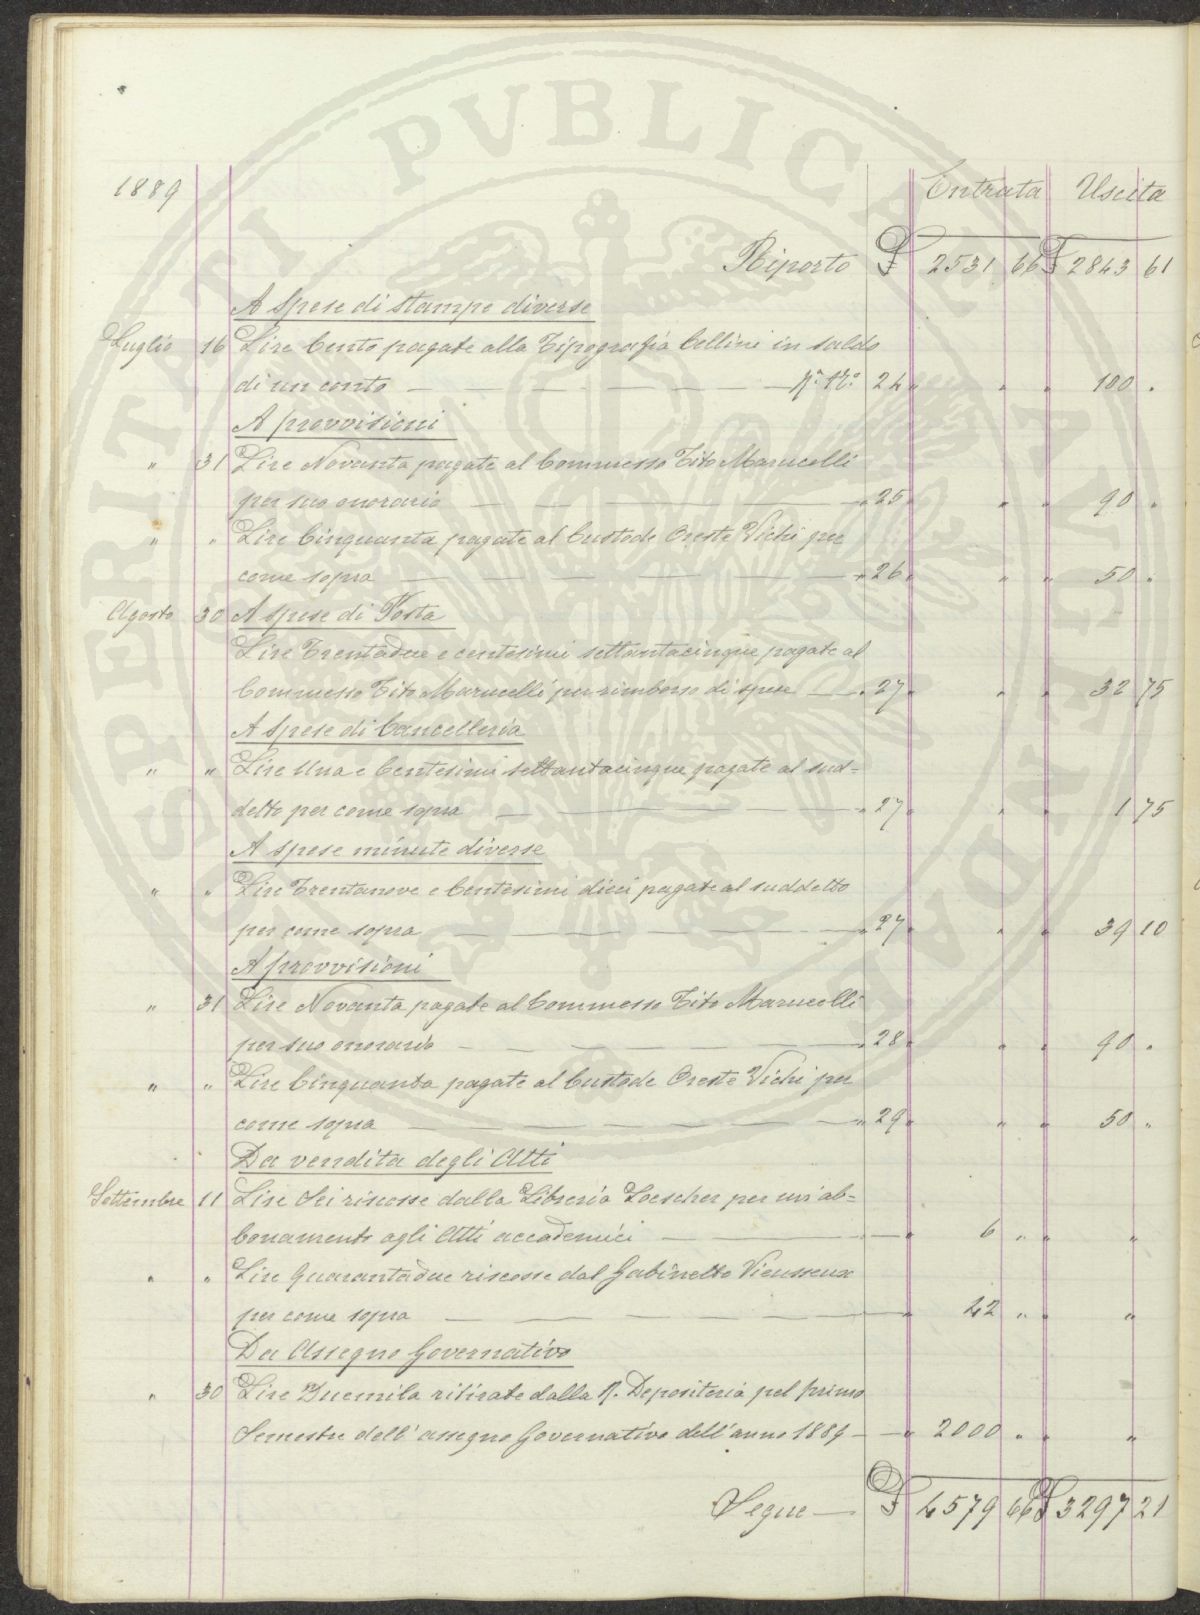 1889 Entrata Uscita
Riporto £ 2531 66 £ 2843 61
A Spese di stampe diverse
Luglio 16 Lire Cento pagate alla Tipografia Cellini in saldo
di un conto — — — 24 " " " 100 "
A provvisioni
" 31 Lire Novanta pagate al Commesso Tito Marucelli
per suo onorario — — — " 25 " " " 90 "
" " Lire Cinquanta pagate al Custode Oreste Vichi per
come sopra — — — " 26 " " " 50 "
Agosto 30 A spese di Posta
Lire Trentadue e centesimi settantacinque pagate al
Commesso Tito Marucelli per rimborso di spese — " 27 " " " 32 75
A Spese di Cancelleria
" " Lire Una e Centesimi settantacinque pagate al sud=
detto per come sopra — — — " 27 " " " 1 75
A spese minute diverse
" " Lire Trentanove e Centesimi dieci pagate al suddetto
per come sopra — — — " 27 " " " 39 10
A provvisioni
" 31 Lire Novanta pagate al Commesso Tito Marucelli
per suo onorario — — — " 28 " " " 90 "
" " Lire Cinquanta pagate al Custode Oreste Vichi per
come sopra — — — " 29 " " " 50 "
Da vendita degli Atti
Settembre 11 Lire Sei riscosse dalla Libreria Loescher per un'ab=
bonamento agli Atti accademici — — — " 6 " " "
" " Lire Quarantadue riscosse dal Gabinetto Vieusseux
per come sopra — — — " 42 " " "
Da Assegno Governativo
" 30 Lire Duemila ritirate dalla R. Depositeria pel primo
Semestre dell'assegno Governativo dell'anno 1889 — — " 2000 " " "
Segue — £ 4579 66 £ 3297 21
PROSPERITATI PVBLICAE AVGENDAE